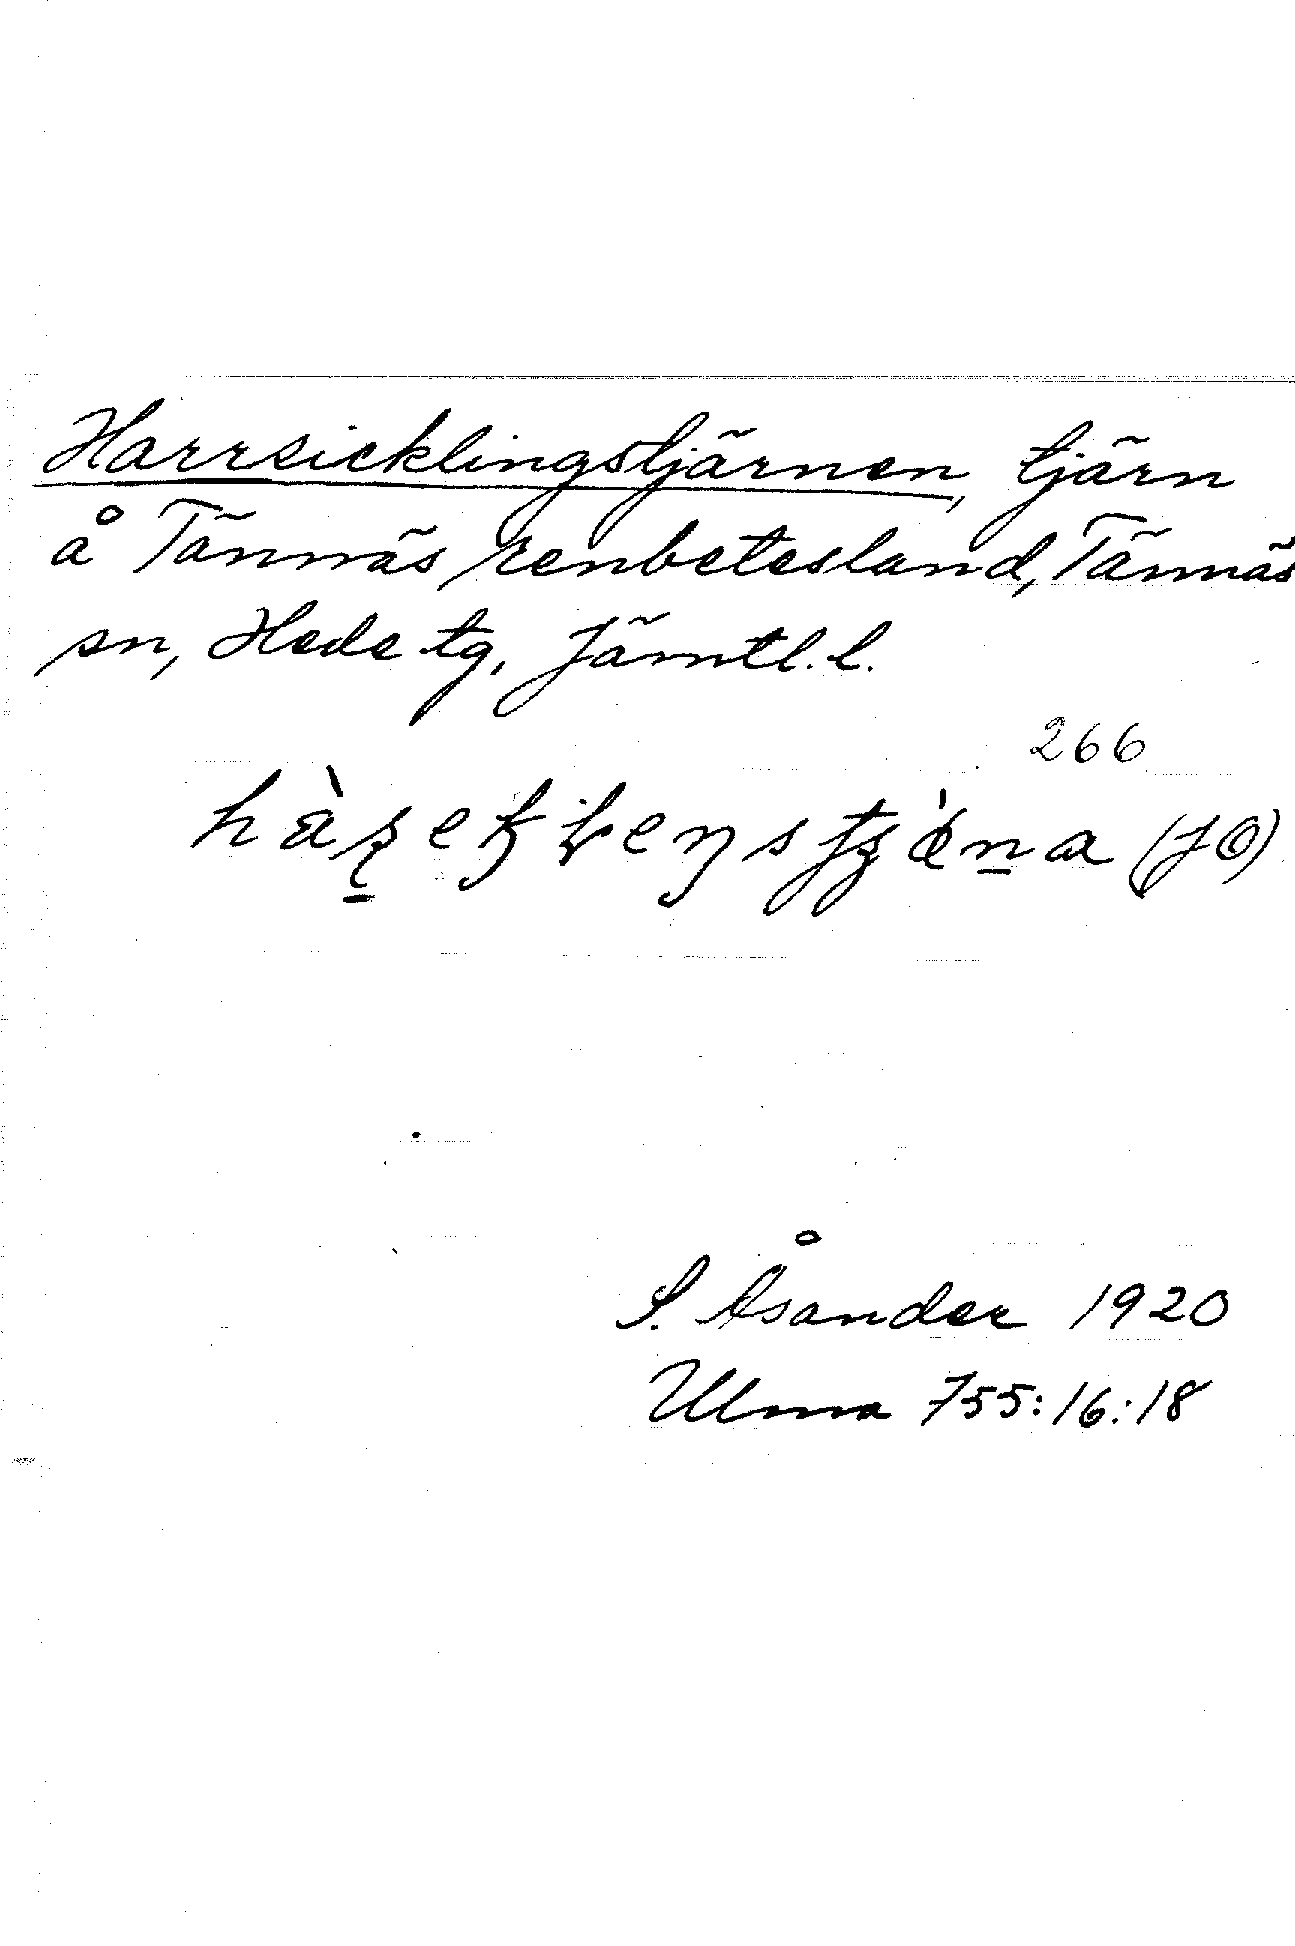 Harrsicklingstjärnen, tjärn
å Tännäs renbetesland, Tännäs
sn, Hede tg, Jämtl. l.
266
S. Åsander 1920
Ulma 755:16:18